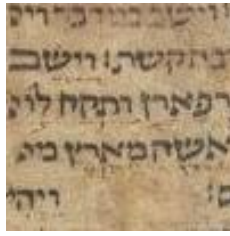 וישב במדבר ויה
רבה קשת: וישב ב
ר פארן ותקח לו
אשה מארץ מ
ם: ויהי